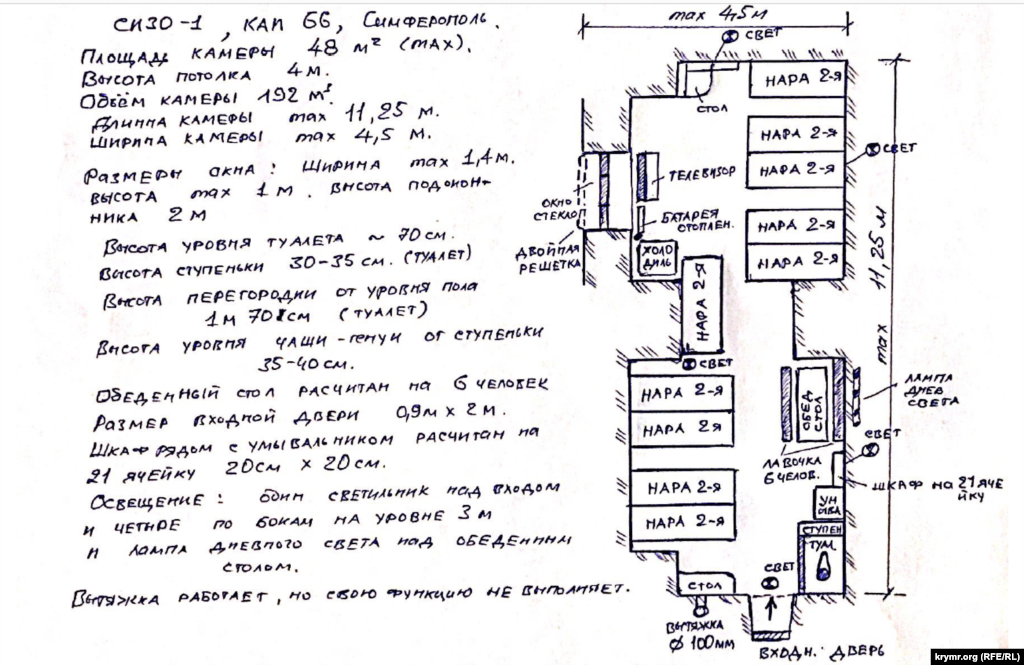 СИЗО-1, КАП 66, Симферополь.
Площадь камеры 48 м² (max).
Высота потолка 4 м.
Объём камеры 192 м³.
Длинна камеры max 11,25 м.
Ширина камеры max 4,5 м.
Размеры окна: Ширина max 1,4 м.
высота max 1 м. Высота подокон-
ника 2 м
Высота уровня туалета ~ 70 см.
Высота ступеньки 30-35 см. (туалет)
Высота перегородки от уровня пола
1 м 70 см (туалет)
Высота уровня чаши-генуи от ступеньки
35-40 см.
Обеденный стол расчитан на 6 человек
Размер входной двери 0,9м х 2 м.
Шкаф рядом с умывальником расчитан на
21 ячейку 20см х 20см.
Освещение: один светильник над входом
и четыре по бокам на уровне 3 м
и лампа дневного света над обеденным
столом.
Вытяжка работает, но свою функцию не выполняет.
max 4,5 м
СВЕТ
СТОЛ
НАРА 2-я
НАРА 2-я
СВЕТ
НАРА 2-я
ТЕЛЕВИЗОР
ОКНО
СТЕКЛО
БАТАРЕЯ
ОТОПЛЕН.
НАРА 2-я
ДВОЙНАЯ
РЕШЕТКА
ХОЛО
ДИЛЬ
НАРА 2-я
11,25 м
max
НАРА 2-я
СВЕТ
НАРА 2-я
НАРА 2я
ОБЕД
СТОЛ
ЛАМПА
ДНЕВ
СВЕТА
СВЕТ
ЛАВОЧКА
6 ЧЕЛОВ.
НАРА 2-я
НАРА 2-я
ШКАФ НА 21 ЯЧЕ
ЙКУ
СТУПЕН
ТУАЛ
СВЕТ
СТОЛ
ВЫТЯЖКА
Ø 100мм
ВХОДН. ДВЕРЬ
krymr.org (RFE/RL)